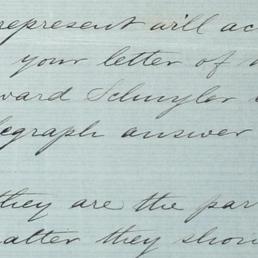 represent will ac
your letter of
ward Schuyler
egraph answer
they are the par
atter they shou